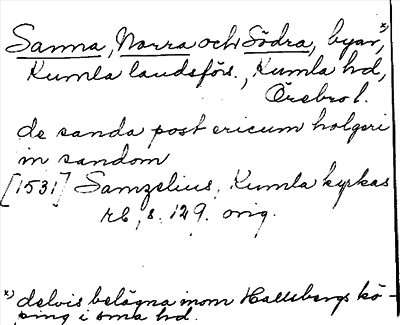 Sanna, Norra och Södra, byar, x)
Kumla landsförs., Kumla hd,
Örebro l.
de sanda post ericum holgeri
in sandom
[1531] Samzelius, Kumla kyrkas
rb, s. 129. orig.
x) delvis belägna inom Hallsbergs kö-
ping i sma hd.